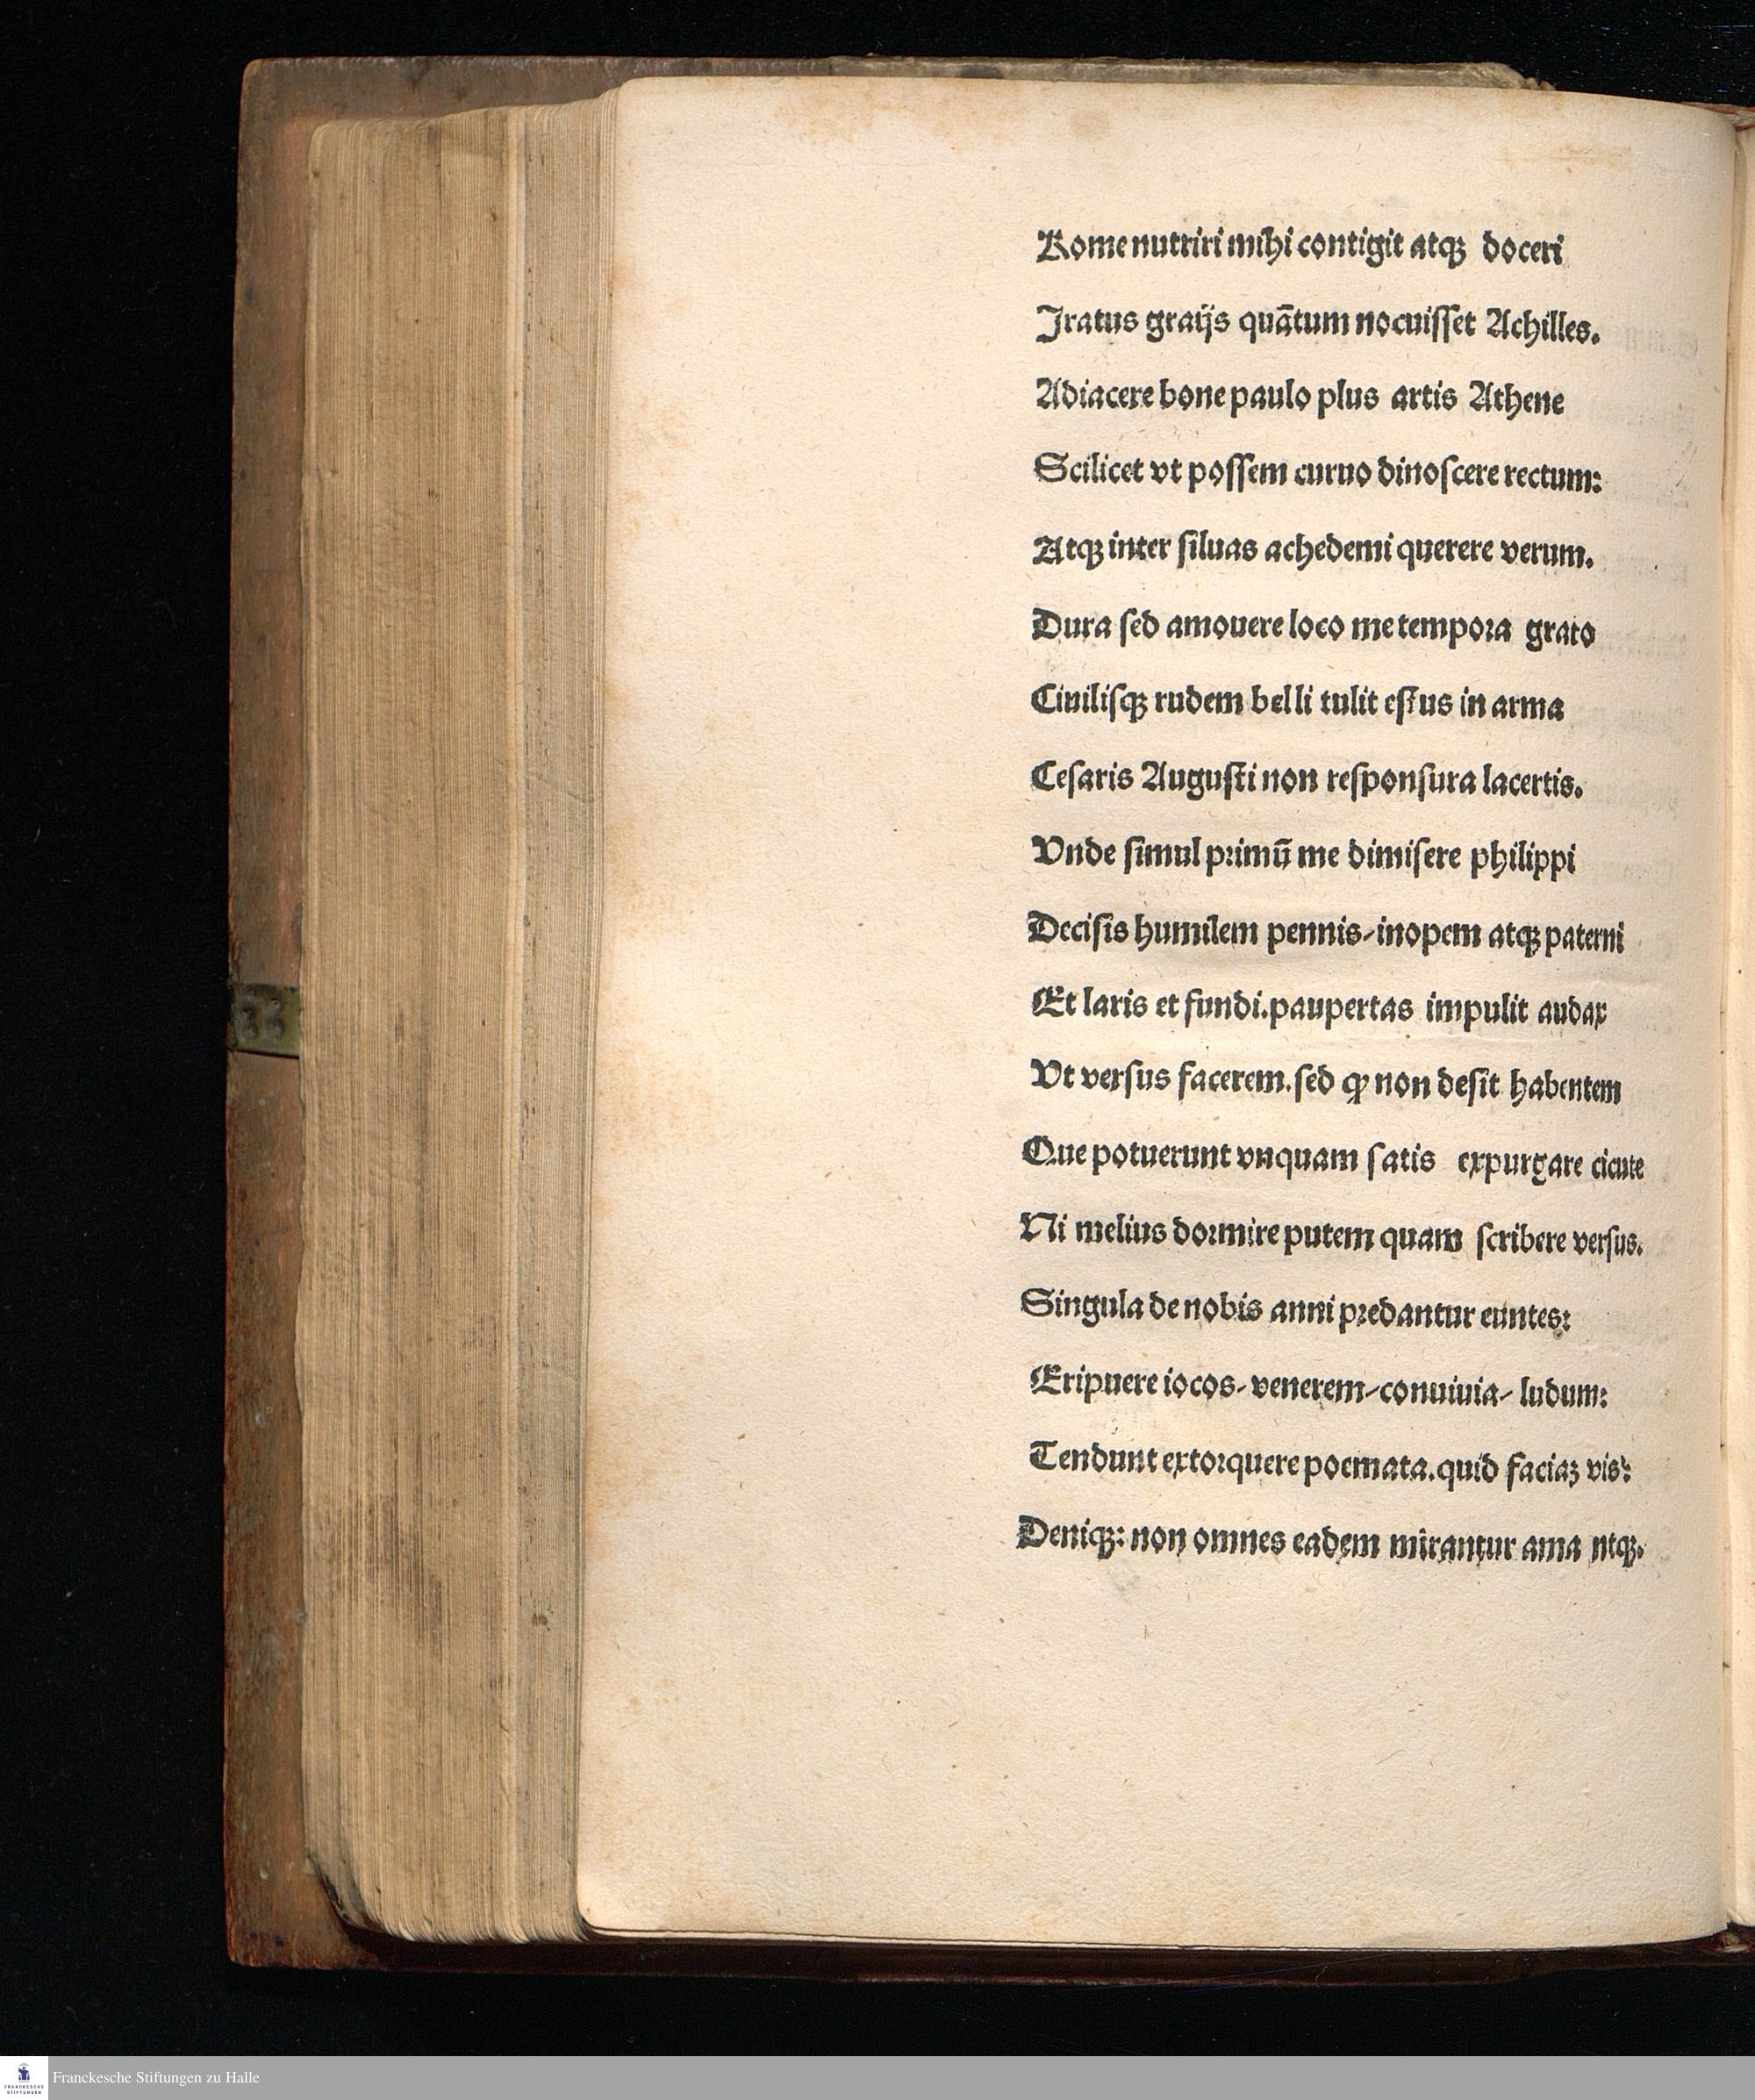 Rome nutriri mihi contigit atqꝫ doceri
Iratus graijs quātum nocuiſſet Achilles.
Adiacere bone paulo plus artis Athene
Scilicet vt poſſem curuo dinoſcere rectum:
Atqꝫ inter ſiluas achedemi querere verum.
Dura ſed amouere loco me tempora grato
Ciuiliſqꝫ rudem belli tulit eſtus in arma
Ceſaris Auguſti non reſponſura lacertis.
Vnde ſimul primū me dimiſere philippi
Deciſis humilem pennis-inopem atqꝫ paterni
Et laris et fundi.paupertas impulit audax
Vt verſus facerem.ſed ꝙ non deſit habentem
Que potuerunt vnquam ſatis expurgare cicute
Ni melius dormire putem quam ſcribere verſus.
Singula de nobis anni predantur euntes:
Eripuere iocos-venerem-conuiuia- ludum:
Tendunt extorquere poemata.quid faciaꝫ vis?
Deniqꝫ: non omnes eadem mirantur ama ntqꝫ.
Franckesche Stiftungen zu Halle
FRANCKESCHE
STIFTUNGEN